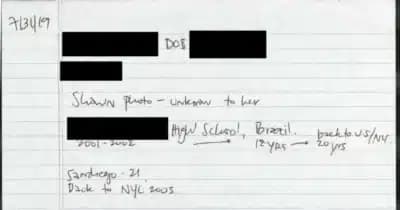 7/31/19
DOB
Shown photo - unknown to her
High School, → Brazil. 12 yrs → back to US/NY 20 yrs
2001-2002
Sandiego - 21.
Back to NYC 2003